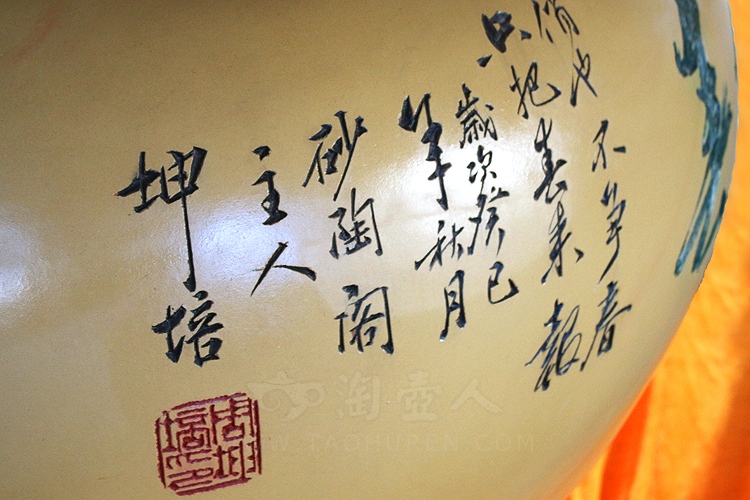 俏也不争春
只把春来報
歲次癸巳
年秋月
砂陶阁
主人
坤培
周坤培印
淘壶人
WWW.TAOHUREN.COM